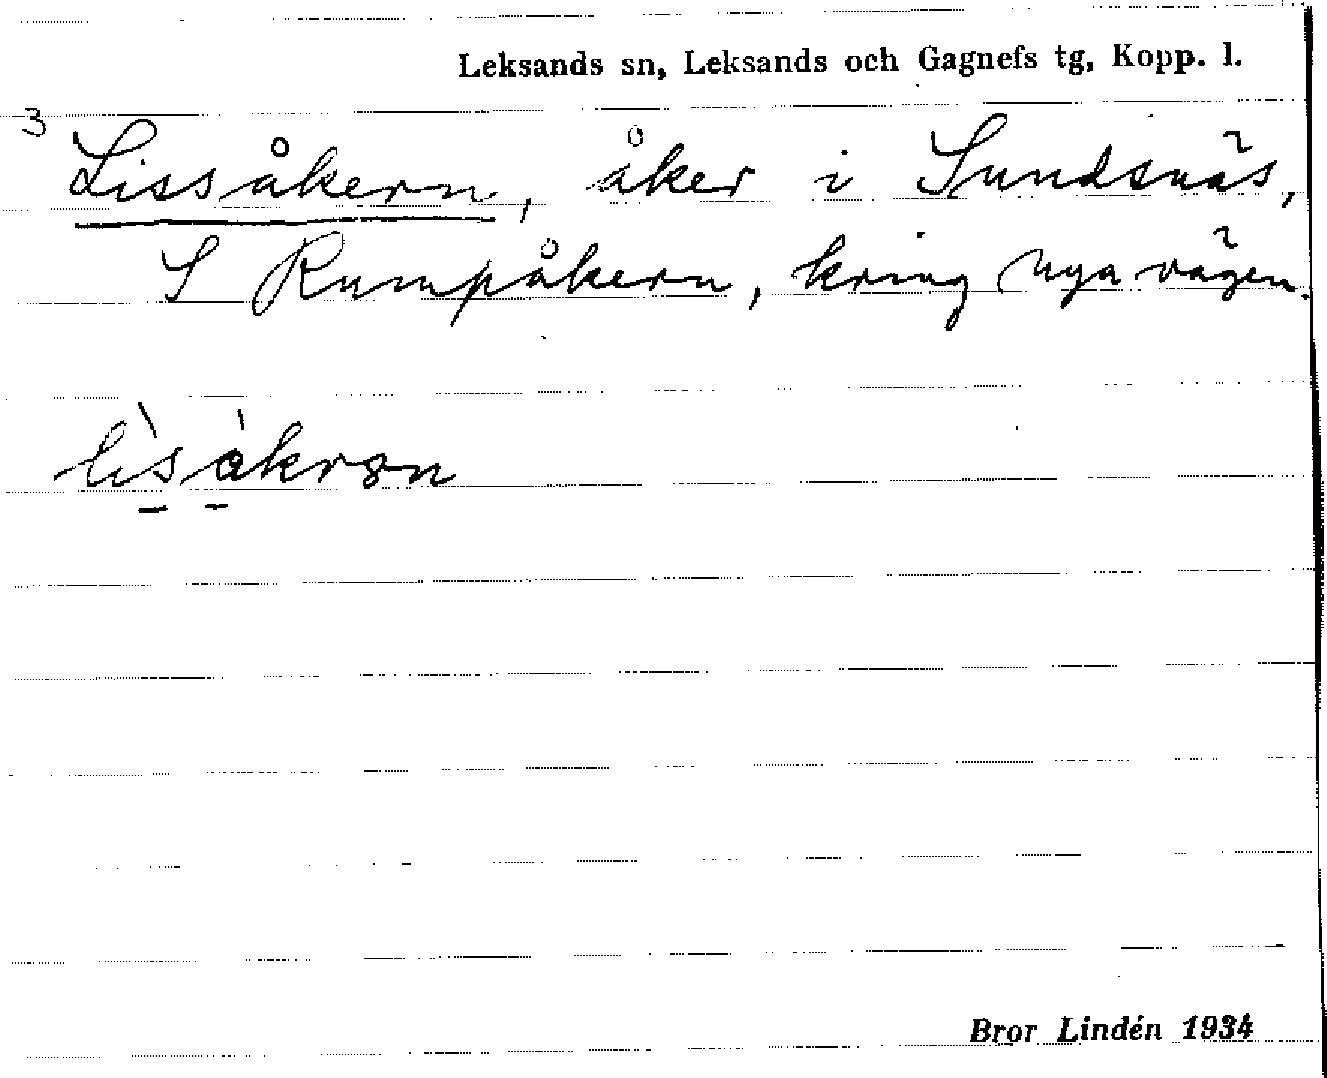 Leksands sn, Leksands och Gagnefs tg, Kopp. l.
3 Lissåkern, åker i Sundsnäs,
S Rumpåkern, kring nya vägen.
Bror Lindén 1934